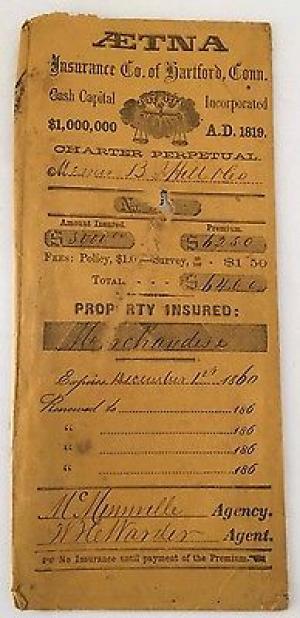 ÆTNA
Insurance Co. of Hartford, Conn.
Cash Capital Incorporated
$1,000,000 A.D. 1819.
CHARTER PERPETUAL.
Messrs B Hill & Co
No.
Amount Insured. Premium.
$ 5000.00 $ 62 50
FEES: Policy, $1.0 Survey, $1 50
TOTAL, - - - $ 64 00
PROPERTY INSURED:
Merchandise
Expires December 1st 1860
Renewed to 186
" 186
" 186
" 186
McMinnville Agency.
Agent.
No Insurance until payment of the Premium.